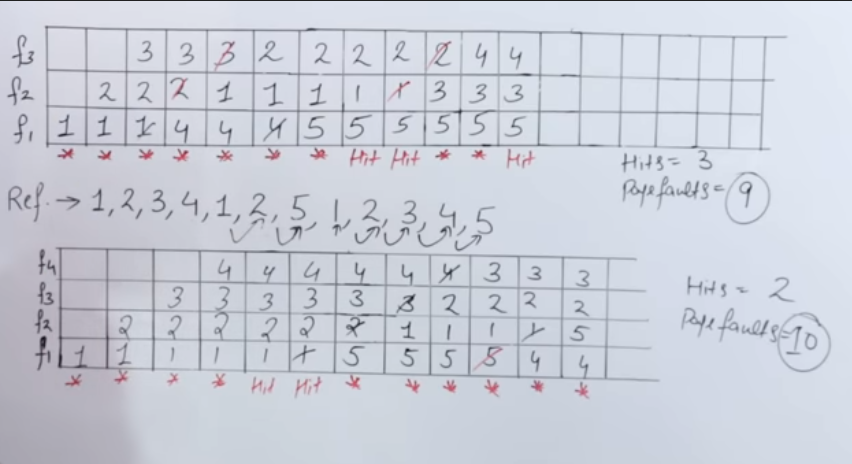 f3 3 3 3 2 2 2 2 2 4 4
f2 2 2 2 1 1 1 1 1 3 3 3
f1 1 1 1 4 4 4 5 5 5 5 5 5
* * * * * * * Hit Hit * * Hit
Hits = 3
Page faults = 9
Ref. → 1, 2, 3, 4, 1, 2, 5, 1, 2, 3, 4, 5
f4 4 4 4 4 4 4 3 3 3
f3 3 3 3 3 3 3 2 2 2 2
f2 2 2 2 2 2 2 1 1 1 1 5
f1 1 1 1 1 1 1 5 5 5 5 4 4
* * * * Hit Hit * * * * * *
Hits = 2
Page faults = 10